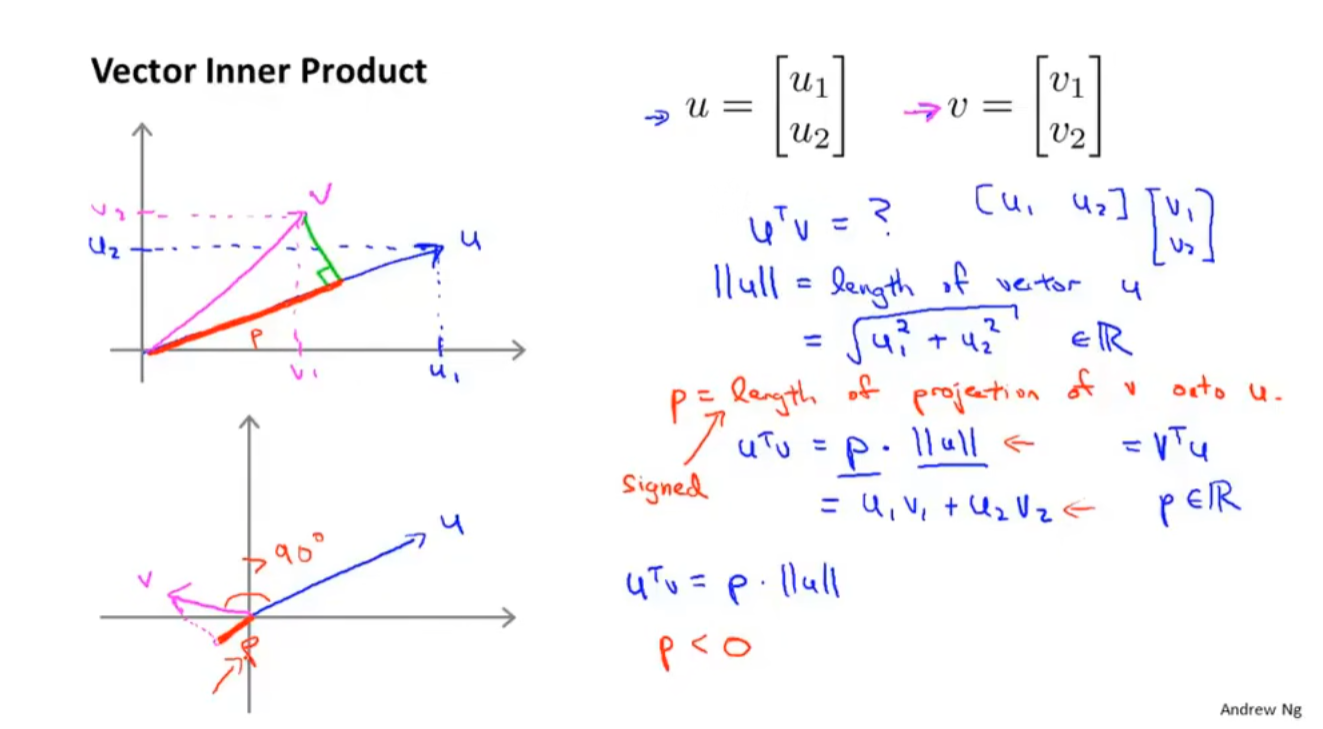 Vector Inner Product
→ u = [u₁ u₂] → v = [v₁ v₂]
uᵀv = ? [u₁ u₂] [v₁ v₂]
||u|| = length of vector u
= √(u₁² + u₂²) ∈ ℝ
p = length of projection of v onto u.
signed
uᵀv = p · ||u|| ← = vᵀu
= u₁v₁ + u₂v₂ ← p ∈ ℝ
uᵀv = p · ||u||
p < 0
v
v₂
u₂
u
p
v₁
u₁
u
> 90°
v
p
Andrew Ng